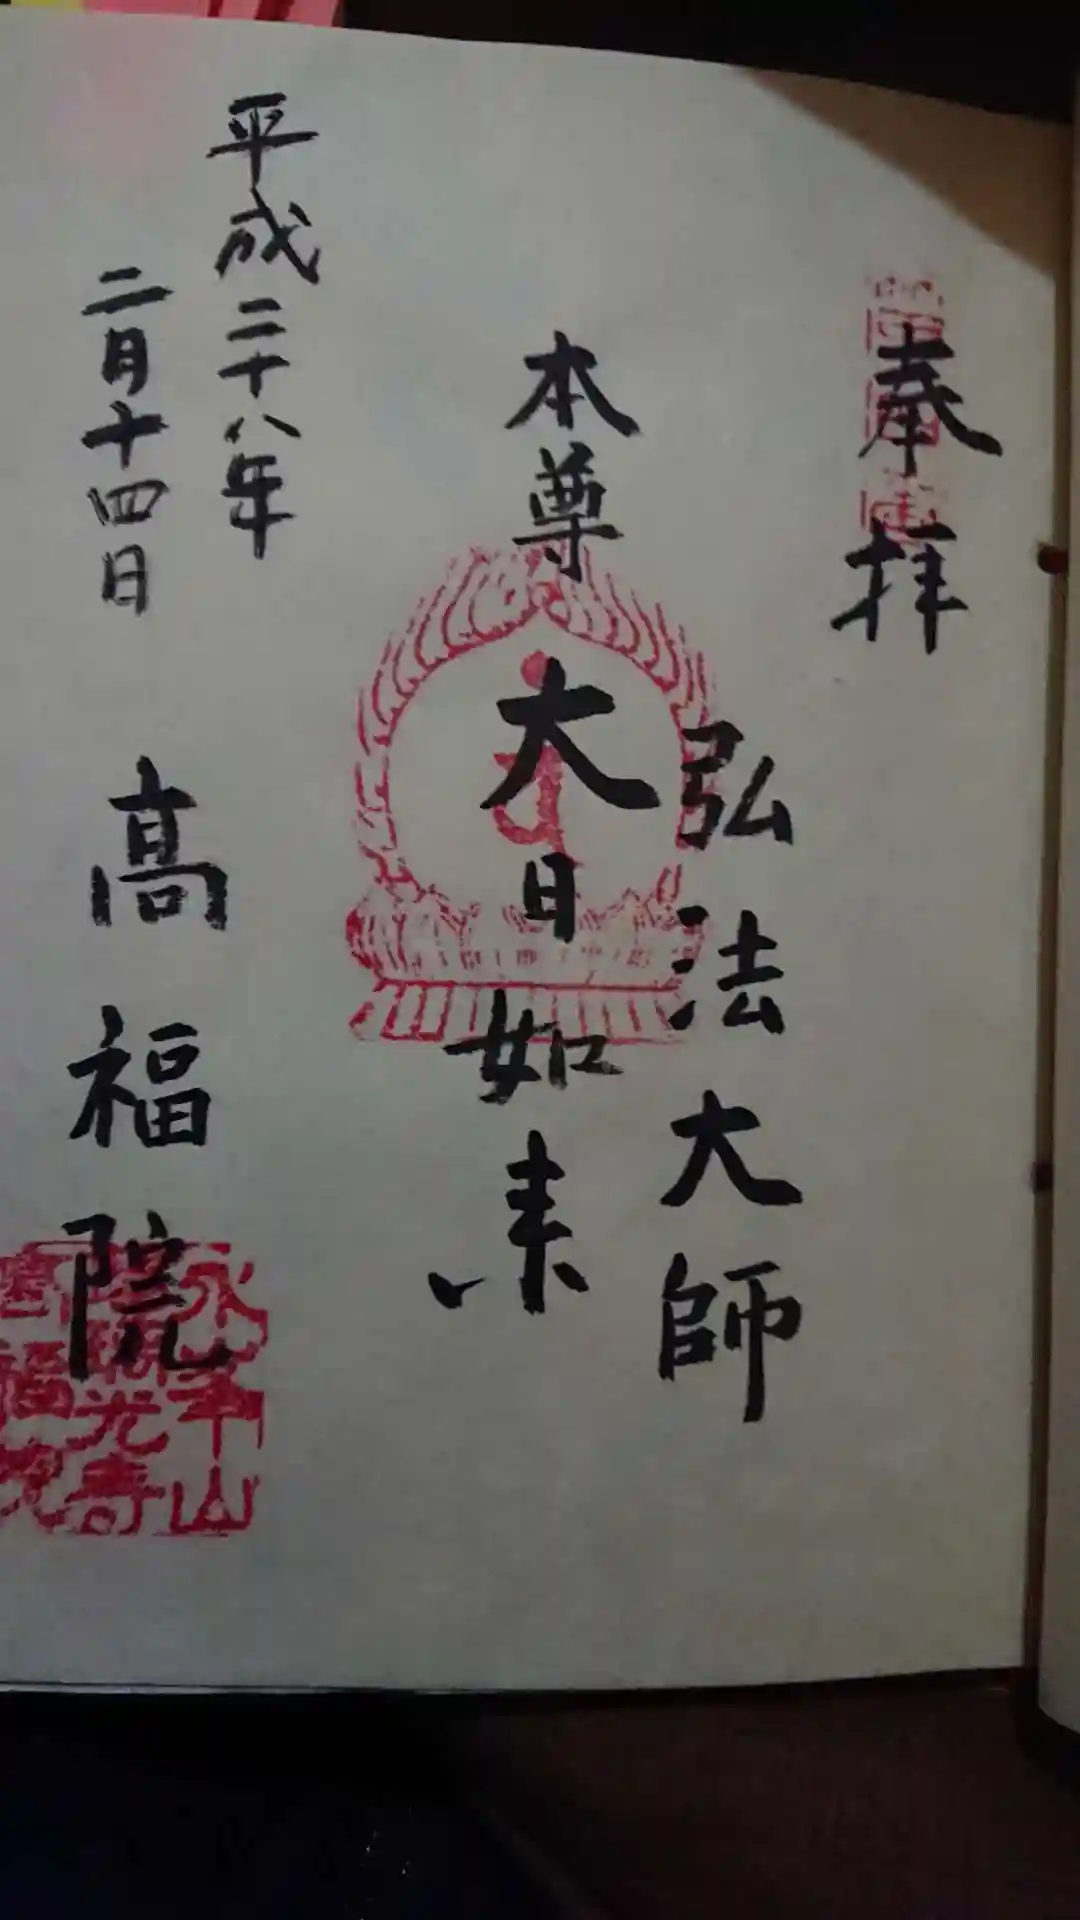 奉拝
弘法大師
本尊 大日如来
平成二十八年
二月十四日
高福院
永峯山
光寿